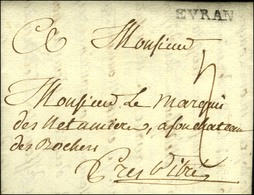 EVRAN
Monsieur
Monsieur le Marquis
des Netumieres, a son chateau
des Rochers
Pres Vitré